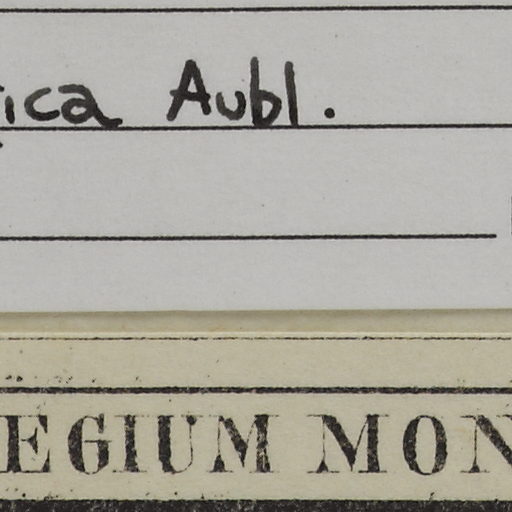 ica Aubl.
EGIUM MON